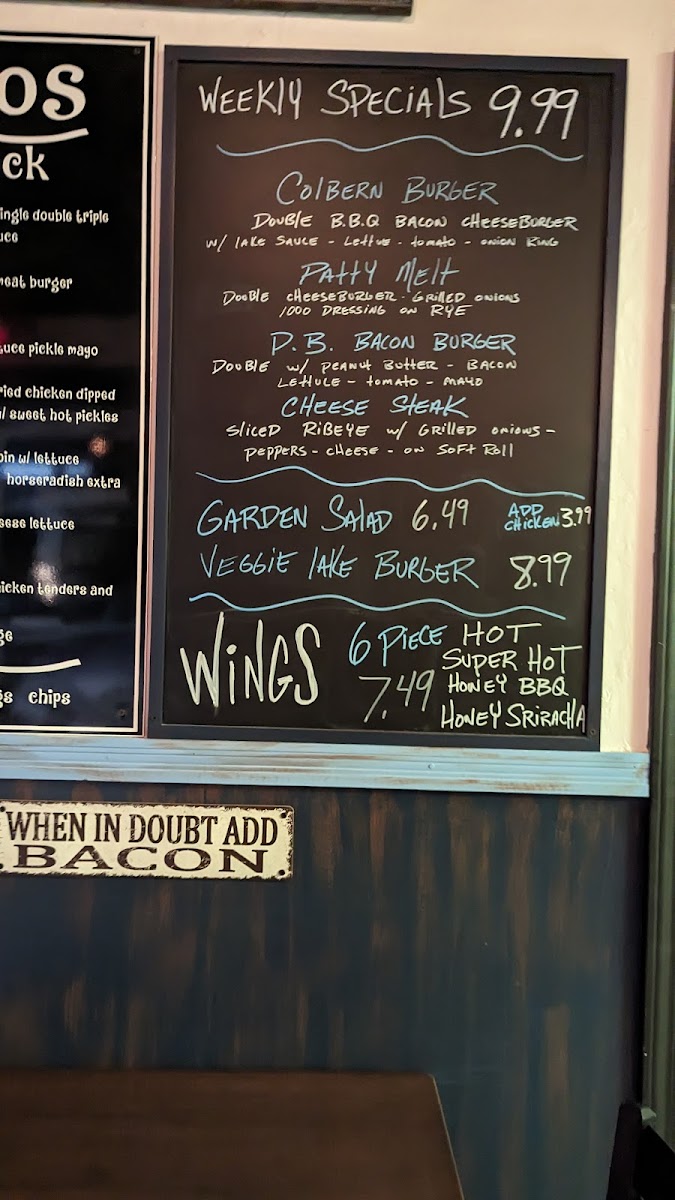 os
ck
ingle double triple
uce
meat burger
tuce pickle mayo
ried chicken dipped
w/ sweet hot pickles
oin w/ lettuce
horseradish extra
eese lettuce
hicken tenders and
ge
gs chips
WEEKLY SPECIALS 9.99
COLBERN BURGER
DOUBLE B.B.Q BACON CHEESEBURGER
W/ LAKE SAUCE - LETTUE - TOMATO - ONION RING
PATTY MELT
DOUBLE CHEESEBURGER - GRILLED ONIONS
1000 DRESSING ON RYE
P.B. BACON BURGER
DOUBLE W/ PEANUT BUTTER - BACON
LETTUCE - TOMATO - MAYO
CHEESE STEAK
SLICED RIBEYE W/ GRILLED ONIONS -
PEPPERS - CHEESE - ON SOFT ROLL
GARDEN SALAD 6.49 ADD CHICKEN 3.99
VEGGIE LAKE BURGER 8.99
WINGS 6 PIECE 7.49
HOT
SUPER HOT
HONEY BBQ
HONEY SRIRACHA
WHEN IN DOUBT ADD
BACON